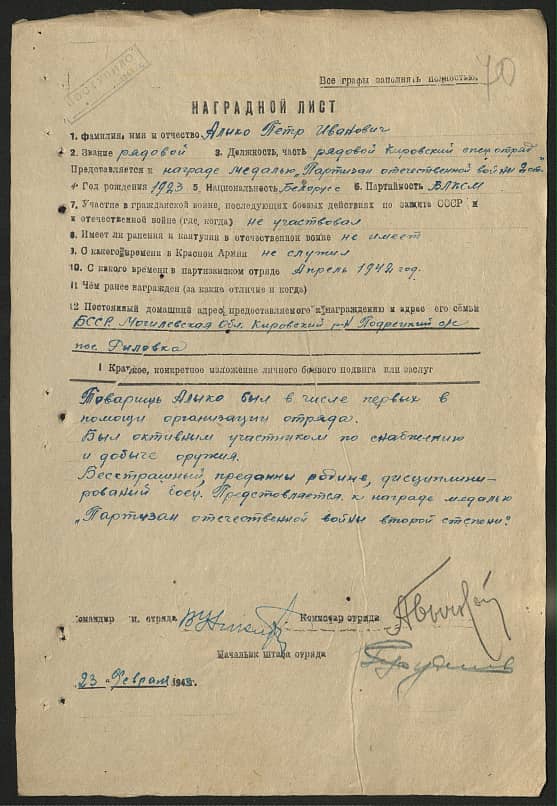 ПОСТУПИЛО
70
Все графы заполнять полностью.
НАГРАДНОЙ ЛИСТ
1. Фамилия, имя и отчество Алыко Петр Иванович
2. Звание рядовой 3. Должность, часть рядовой Кировский спец отряд
Представляется к награде медалью „Партизан отечественной войны 2 ст."
4 Год рождения 1923 5. Национальность Белорус 6. Партийность ВЛКСМ
7. Участие в гражданской войне, последующих боевых действиях по защите СССР и
и отечественной войне (где, когда) не участвовал
8. Имеет ли ранения и кантузии в отечественной войне не имеет
9. С какого времени в Красной Армии не служил
10. С какого времени в партизанском отряде Апрель 1942 год.
11 Чем ранее награжден (за какие отличие и когда)
12 Постоянный домашний адрес предоставляемого к награждению и адрес его семьи
БССР. Могилевская Обл. Кировский р-н Подрецкий с/с
пос.
I Краткое, конкретное изложение личного боевого подвига или заслуг
Товарищь Алыко был в числе первых в
помощи организации отряда.
Был активним участником по снабжению
и добыче оружия.
Бесстрашный, преданны родине, дисциплини-
рований боец. Предстовляется к награде медалью
„Партизан отечественной войны второй степени."
Командир отряда Комиссар отряда
Начальник штаба отряда
23 Февраля 1943г.